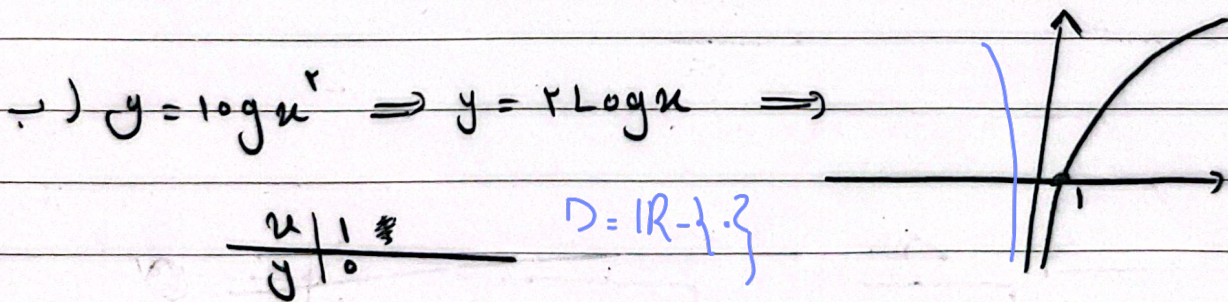 ب) y = log x^۲ ⇒ y = ۲ Log x ⇒
۱
x | 1
y | 0
D = ℝ - {۰}